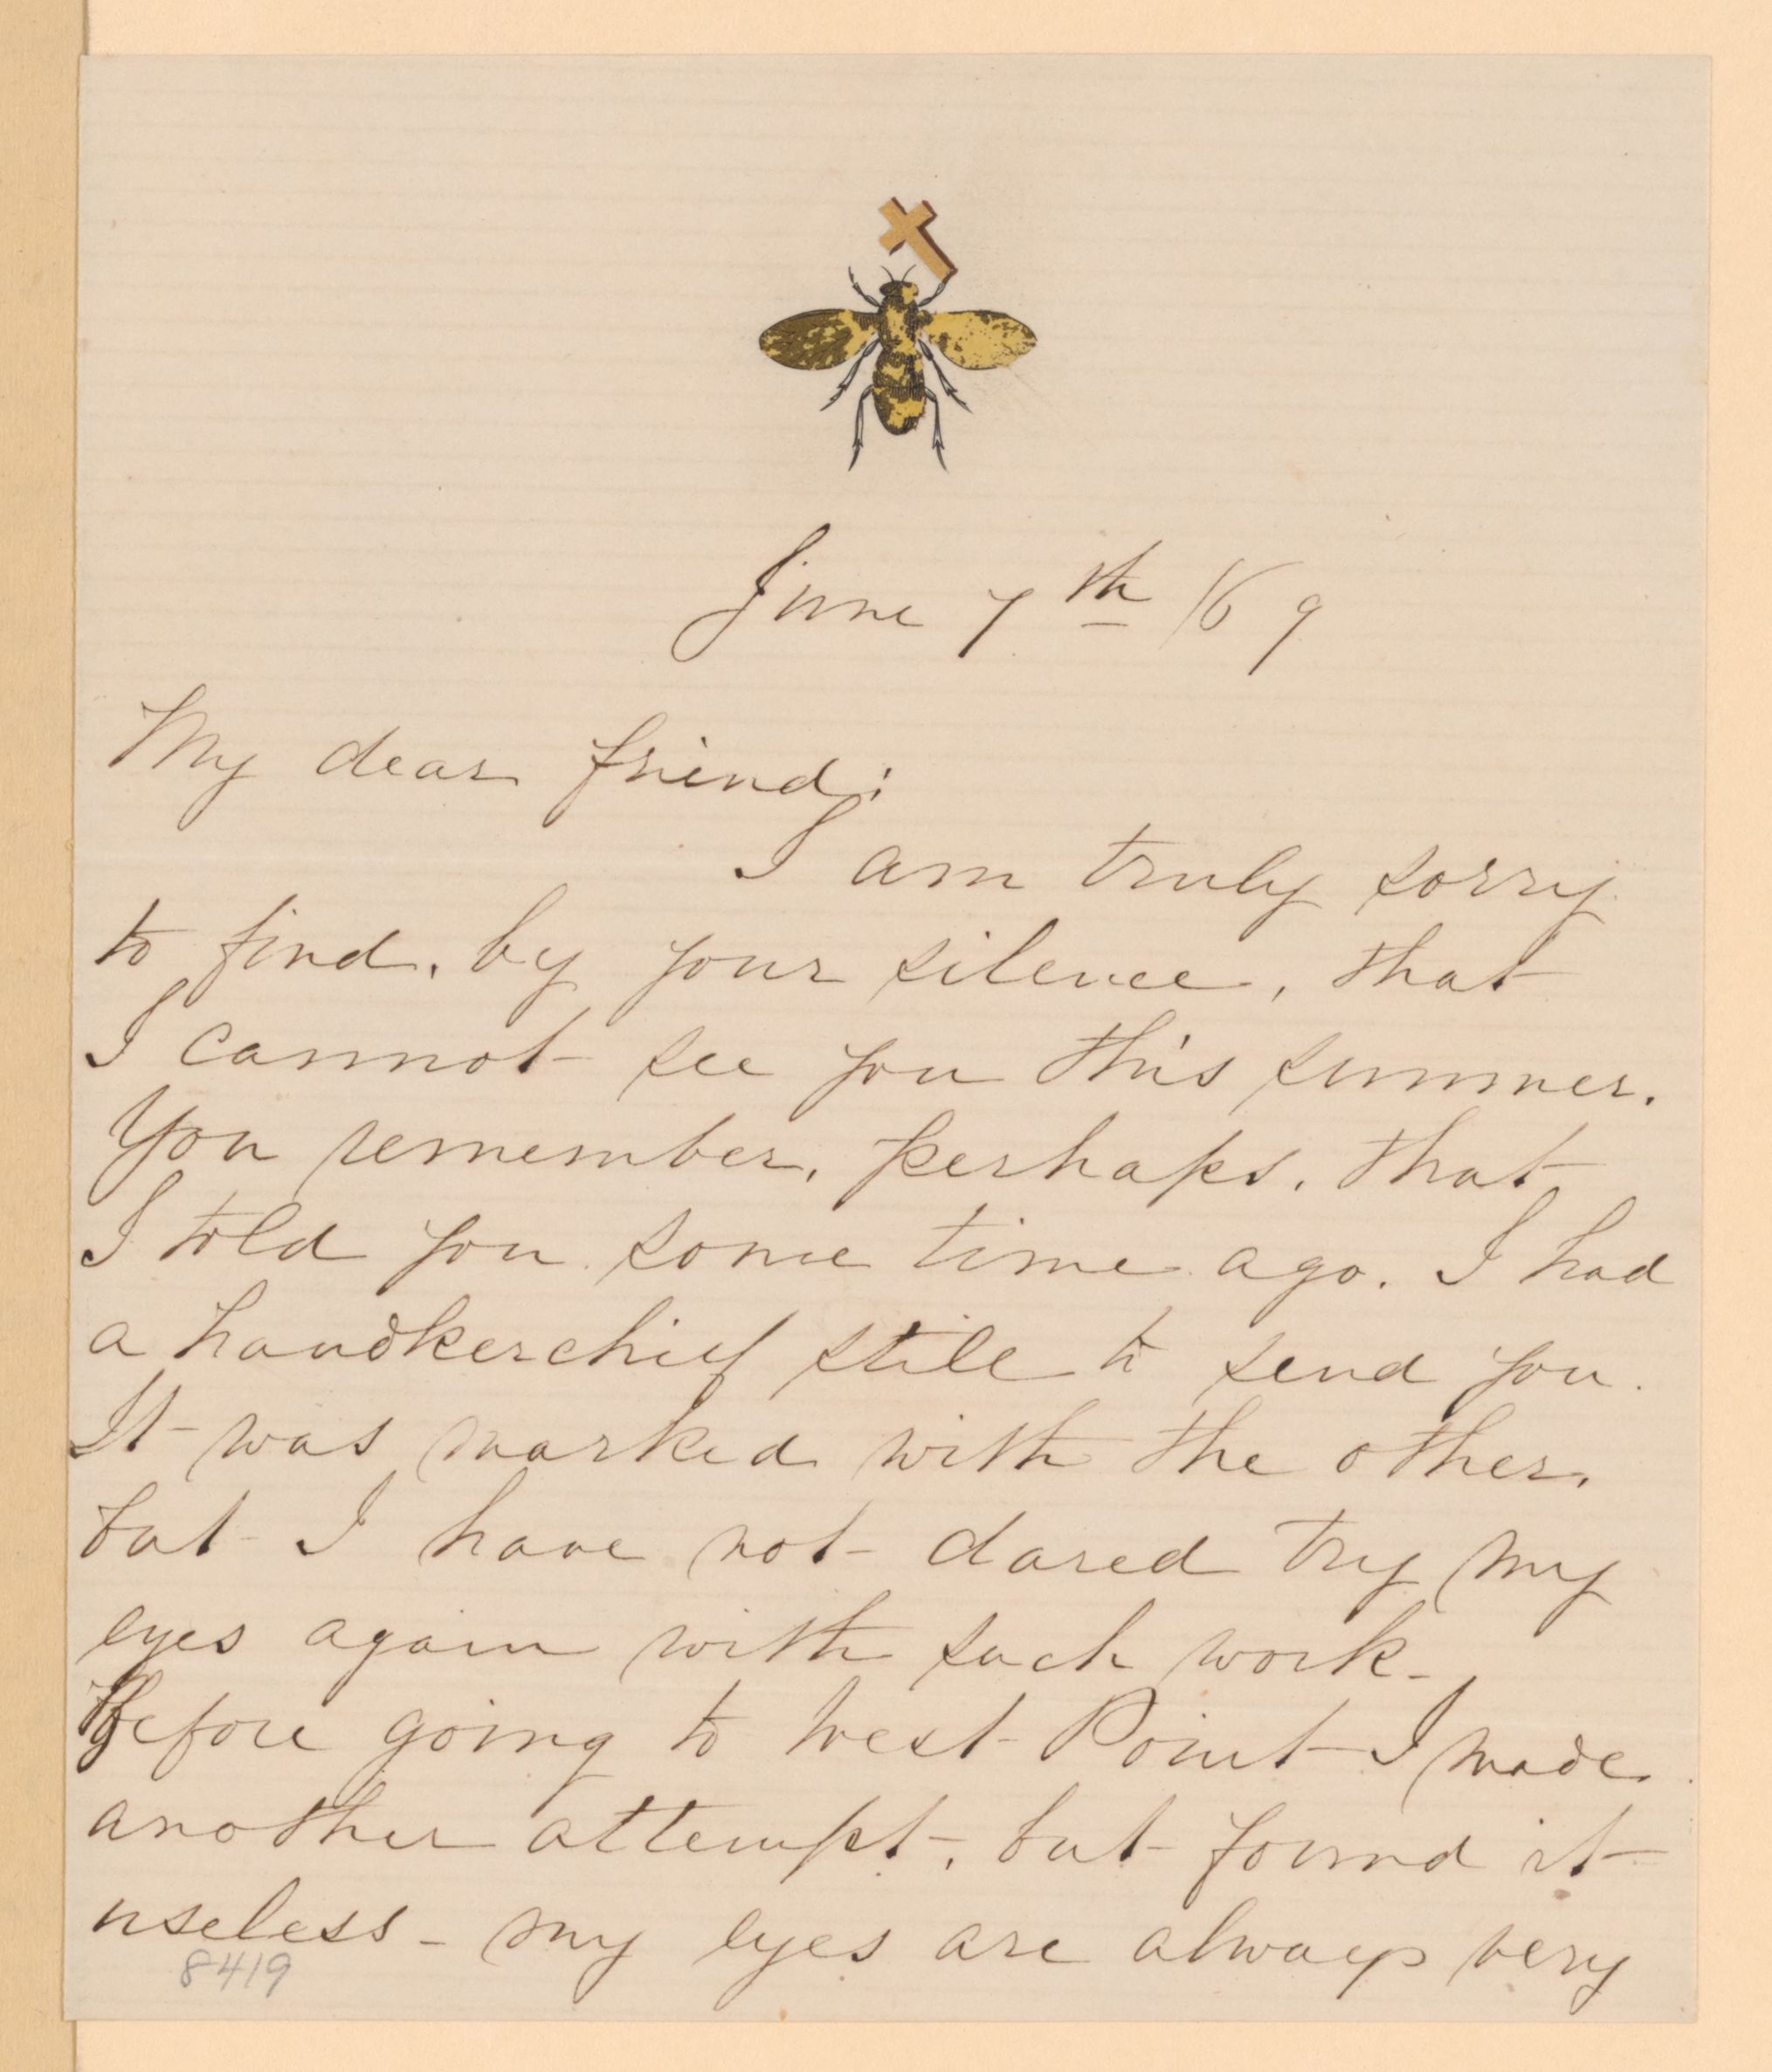 June 7th /69
My dear friend:
I am truly sorry
to find, by your silence, that
I cannot see you this summer.
You remember, perhaps, that
I told you some time ago, I had
a handkerchief still to send you.
It was marked with the other,
but I have not dared try my
eyes again with such work.
Before going to West Point I made
another attempt, but found it
useless - my eyes are always very
8419